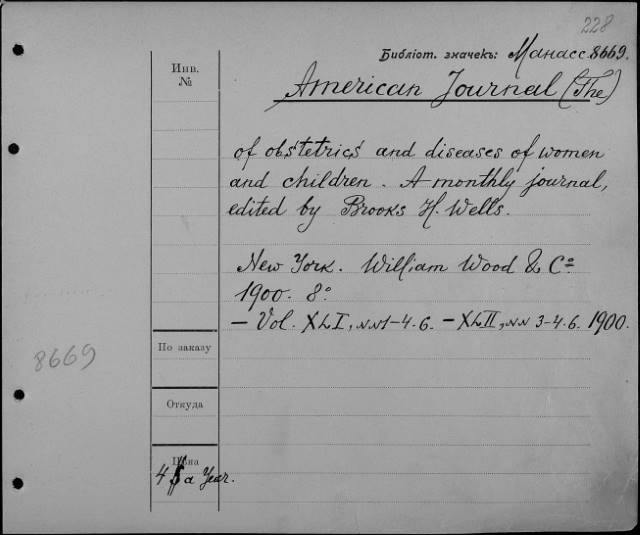 228
Библіот. значекъ: Манасс. 8669.
Инв.
№
American Journal (The)
of obstetrics and diseases of women
and children. A monthly journal,
edited by Brooks H. Wells.
New York. William Wood & Cº
1900. 8º
— Vol. XLI, NN1-4.6. — XLII, NN 3-4.6. 1900.
По заказу
8669
Откуда
Цѣна
4 $ a Year.